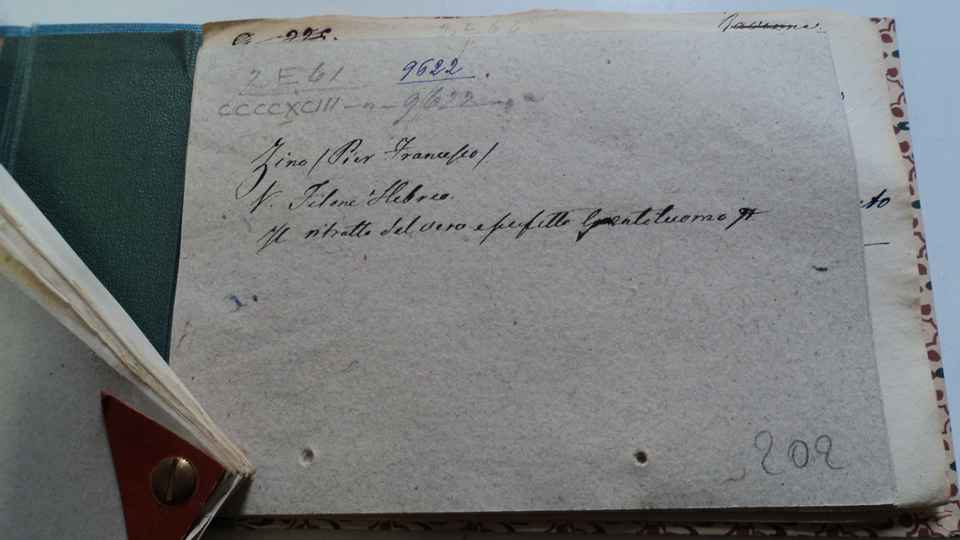 2 E 61 9622.
CCCCXCIII - n - 9622
Zino (Pier Francesco)
V. Filone Hebreo.
Il ritratto del vero e perfetto Gentiluomo
1.
202